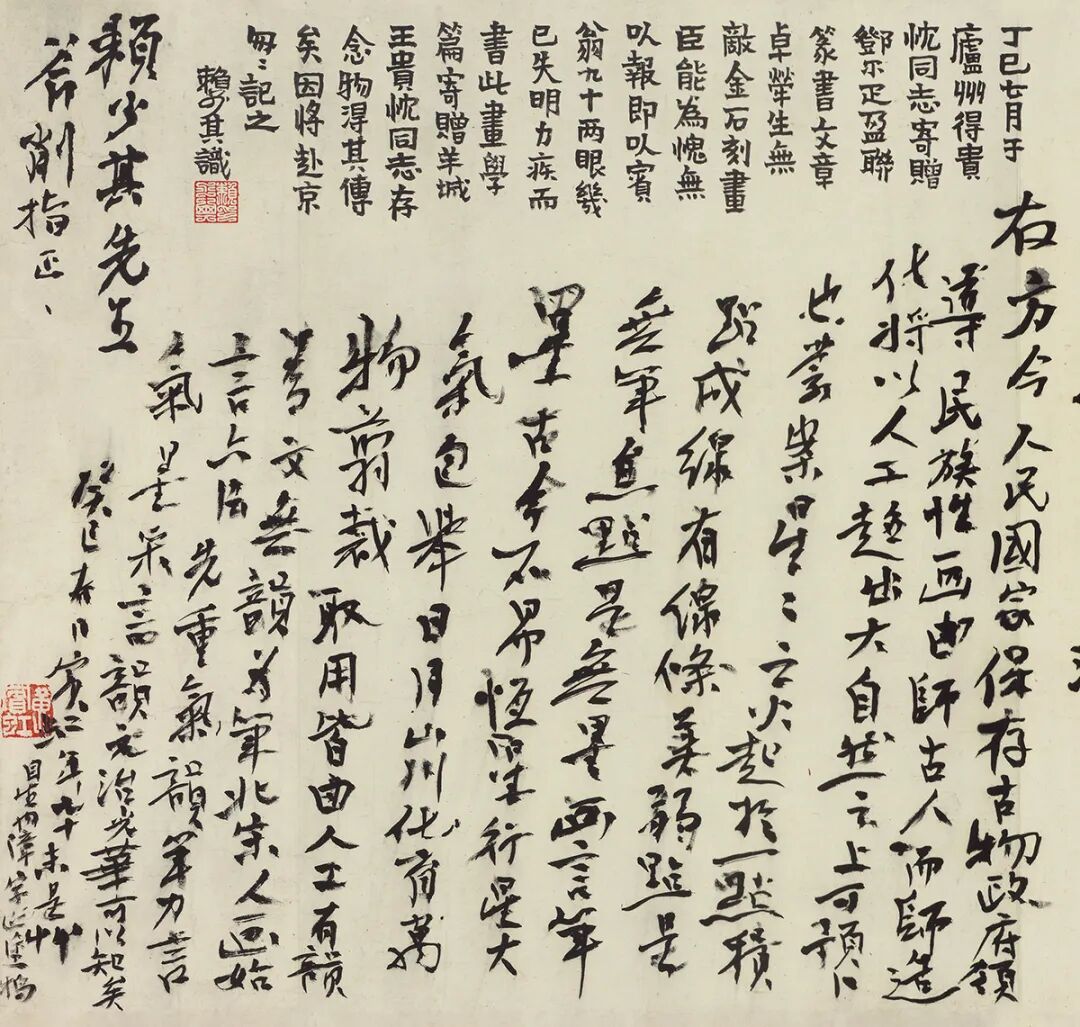 丁巳七月于
廬州得貴
忱同志寄贈
鄧尔疋盈聯
篆書文章
卓犖生無
敵金石刻畫
臣能為愧無
以報即以賓
翁九十兩眼幾
已失明力疾而
書此畫學
篇寄贈羊城
王貴忱同志存
念物淂其傳
矣因將赴京
匆匆記之
賴少其識
右方今人民國家保存古物政府領
導民族性画由師古人而師造
化將以人工越出大自然之上可預卜
也蒙案星星之火起於一點積
點成線有線條美弱點是
無筆焦點是無墨画言筆
墨古今不易恒星行星大
氣包舉日月山川化育萬
物剪裁取用皆由人工有韻
為文無韻為筆北宋人画始
言六法先重氣韻筆力言
氣墨采言韻元治光華可以知矣
癸巳春日賓虹年九十未是草
目生内障字迹塗鴉
賴少其先生
斧削指正
黃賓虹